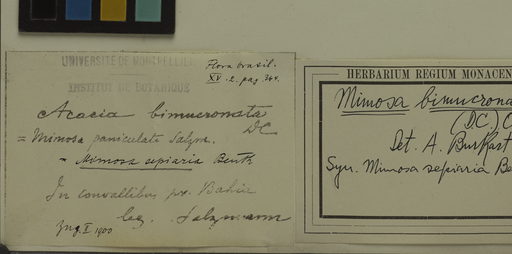 UNIVERSITE DE MONTPELLIER
INSTITUT DE BOTANIQUE
Flora brasil.
XV. 2. pag. 364.
Acacia bimucronata
DC
= Mimosa paniculata Salzm.
= Mimosa sepiaria Benth
In convallibus pr. Bahia
leg. Salzmann
I 1900
HERBARIUM REGIUM MONACEN
Mimosa bimucrona
(DC) O
Det. A. Burkart
Syn. Mimosa sepiaria Be